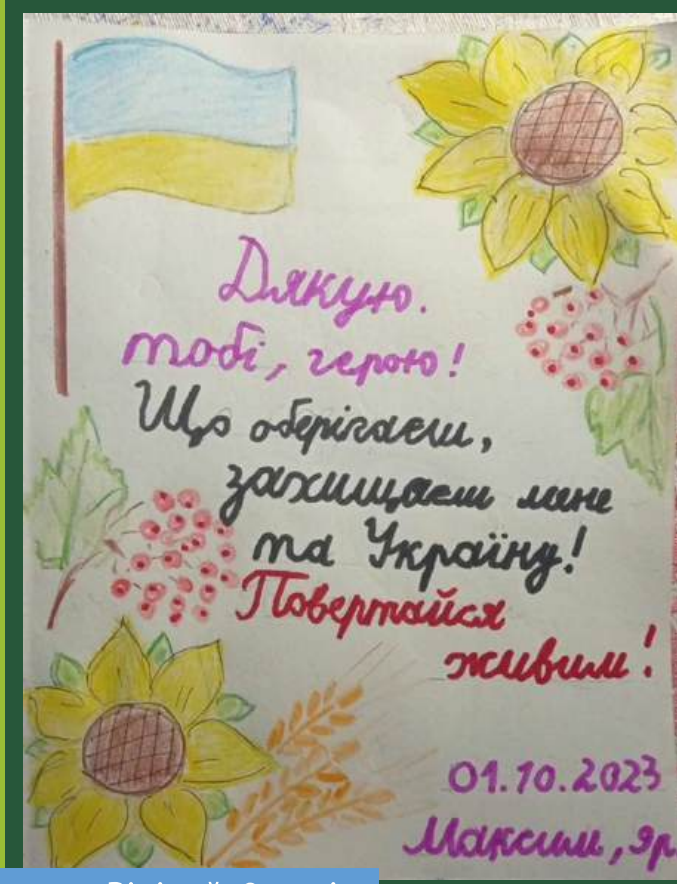 Дякую.
тобі, герою!
Що оберігаєш,
захищаєш мене
та Україну!
Повертайся
живим!
01.10.2023
Максим, 9р